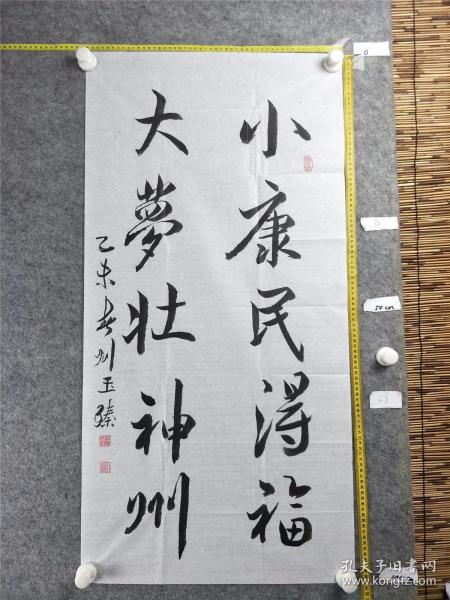 小康民得福
大夢壯神州
乙未 州玉臻
0
50cm
孔夫子旧书网
www.kongfz.com